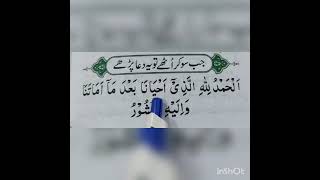 جب سو کر اُٹھے تو یہ دعا پڑھے
اَلْحَمْدُ لِلّٰهِ الَّذِیْۤ اَحْیَانَا بَعْدَ مَاۤ اَمَاتَنَا
وَاِلَیْهِ
InShOt